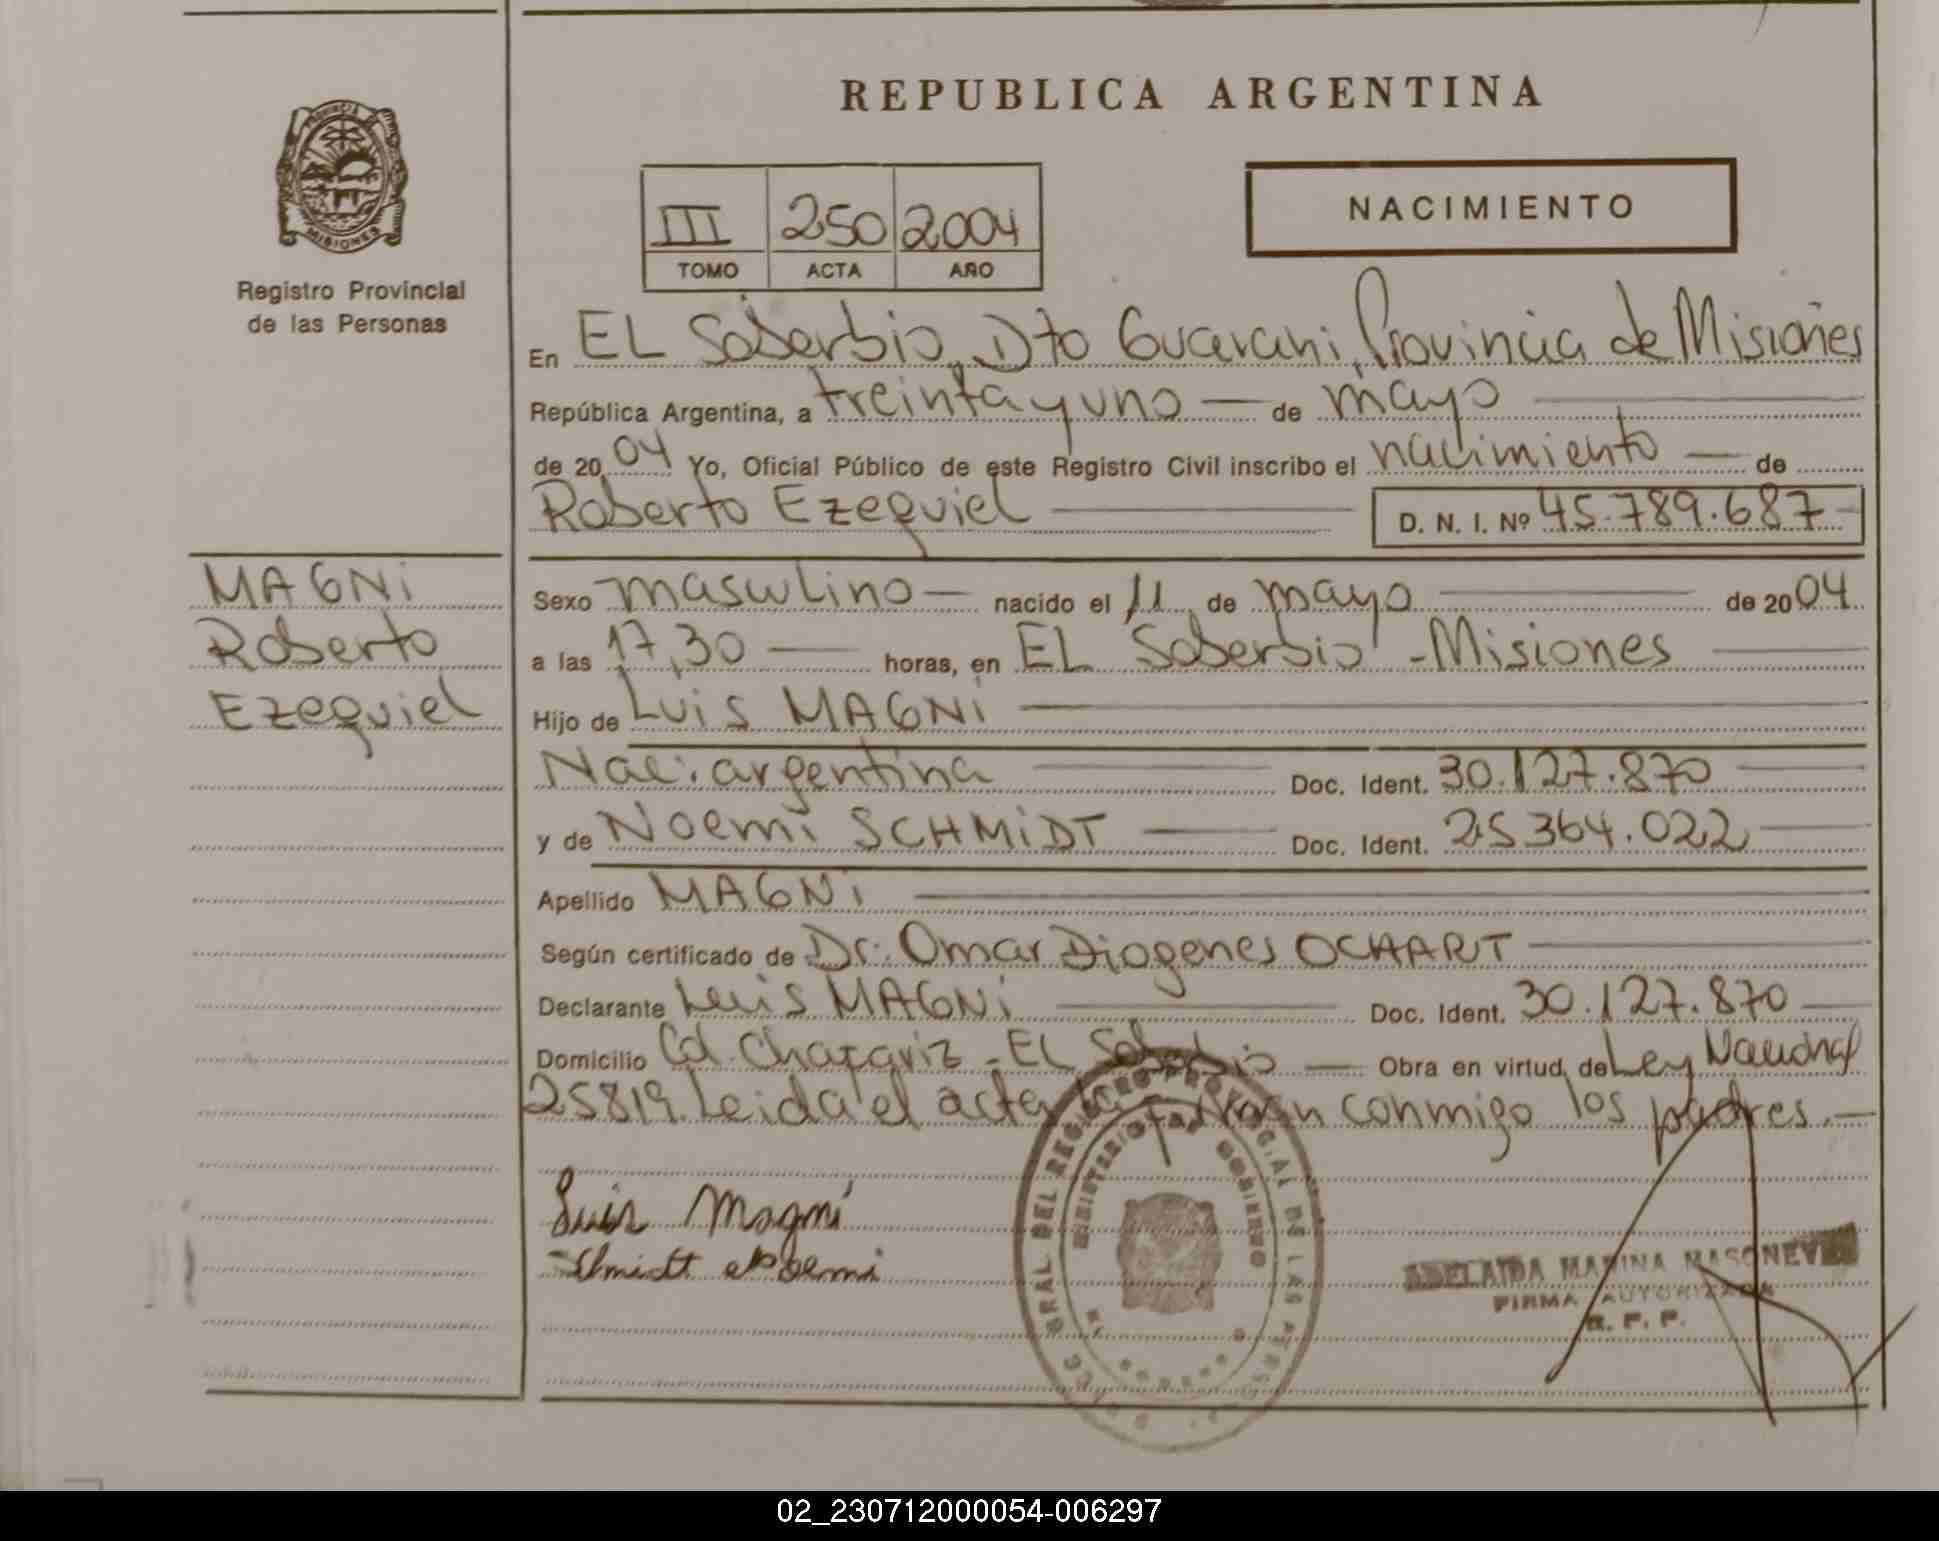 REPUBLICA ARGENTINA
PROVINCIA DE
MISIONES
Registro Provincial
de las Personas
III 250 2004
TOMO ACTA AÑO
NACIMIENTO
En EL Soberbio, Dto Guarani, Provincia de Misiones
República Argentina, a treinta y uno — de mayo
de 20 04 Yo, Oficial Público de este Registro Civil inscribo el nacimiento — de
Roberto Ezequiel — D. N. I. Nº 45.789.687
MAGNi
Roberto
Ezequiel
Sexo masculino — nacido el 11 de mayo — de 20 04
a las 17,30 — horas, en EL Soberbio - Misiones
Hijo de Luis MAGNi
Nac. argentina — Doc. Ident. 30.127.870
y de Noemi SCHMiDT — Doc. Ident. 25.364.022
Apellido MAGNi
Según certificado de Dr. Omar Diogenes OCHART
Declarante Luis MAGNi — Doc. Ident. 30.127.870
Domicilio Col. Chafariz - EL Soberbio — Obra en virtud de Ley Nacional
25819. Leida el acta, la firman conmigo los padres. —
Luis Magni
Shmidt Noemi
GRAL DEL REGISTRO PROVINCIAL DE LAS PERSONAS
MINISTERIO DE GOBIERNO
MISIONES
ADELAIDA MARINA
FIRMA AUTORIZADA
R. P. P.
02_230712000054-006297